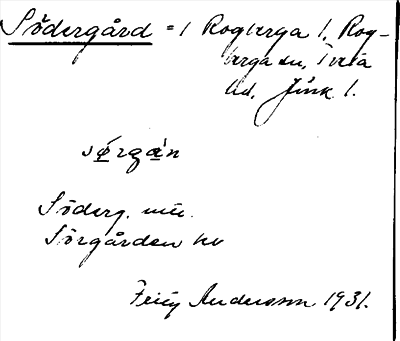 Södergård = 1 Rogberga 1, Rog-
berga sn, Tveta
hd, Jönk l.
sørgàn
Söderg. mu.
Sörgården hv
Andersson 1931.